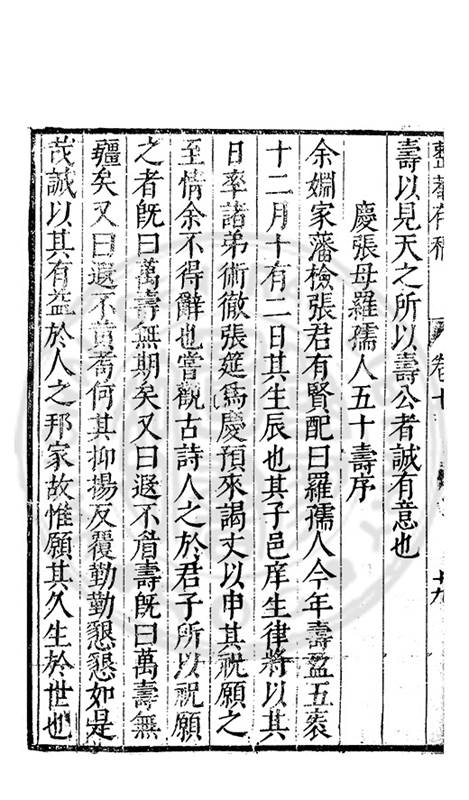 整菴存稿 卷十 十九
壽以見天之所以壽公者誠有意也
慶張母羅孺人五十壽序
余婣家藩檢張君有賢配曰羅孺人今年壽盈五袠
十二月十有二日其生辰也其子邑庠生律將以其
日率諸弟術徹張筵爲慶預來謁文以申其祝願之
至情余不得辭也嘗觀古詩人之於君子所以祝願
之者旣曰萬壽無期矣又曰遐不眉壽旣曰萬壽無
疆矣又曰遐不黃耉何其抑揚反覆勤勤懇懇如是
哉誠以其有益於人之邦家故惟願其久生於世也